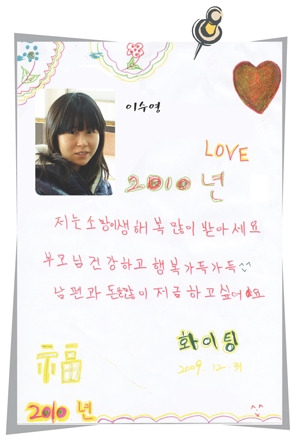 이수영
LOVE
2010 년
저는 소망이생 해 복 많이 받아세요
부모님 건강하고 행복가득가득^^
남편과 돈많이 저금하고싶어요
화이팅
2009. 12. 31
福
2010 년